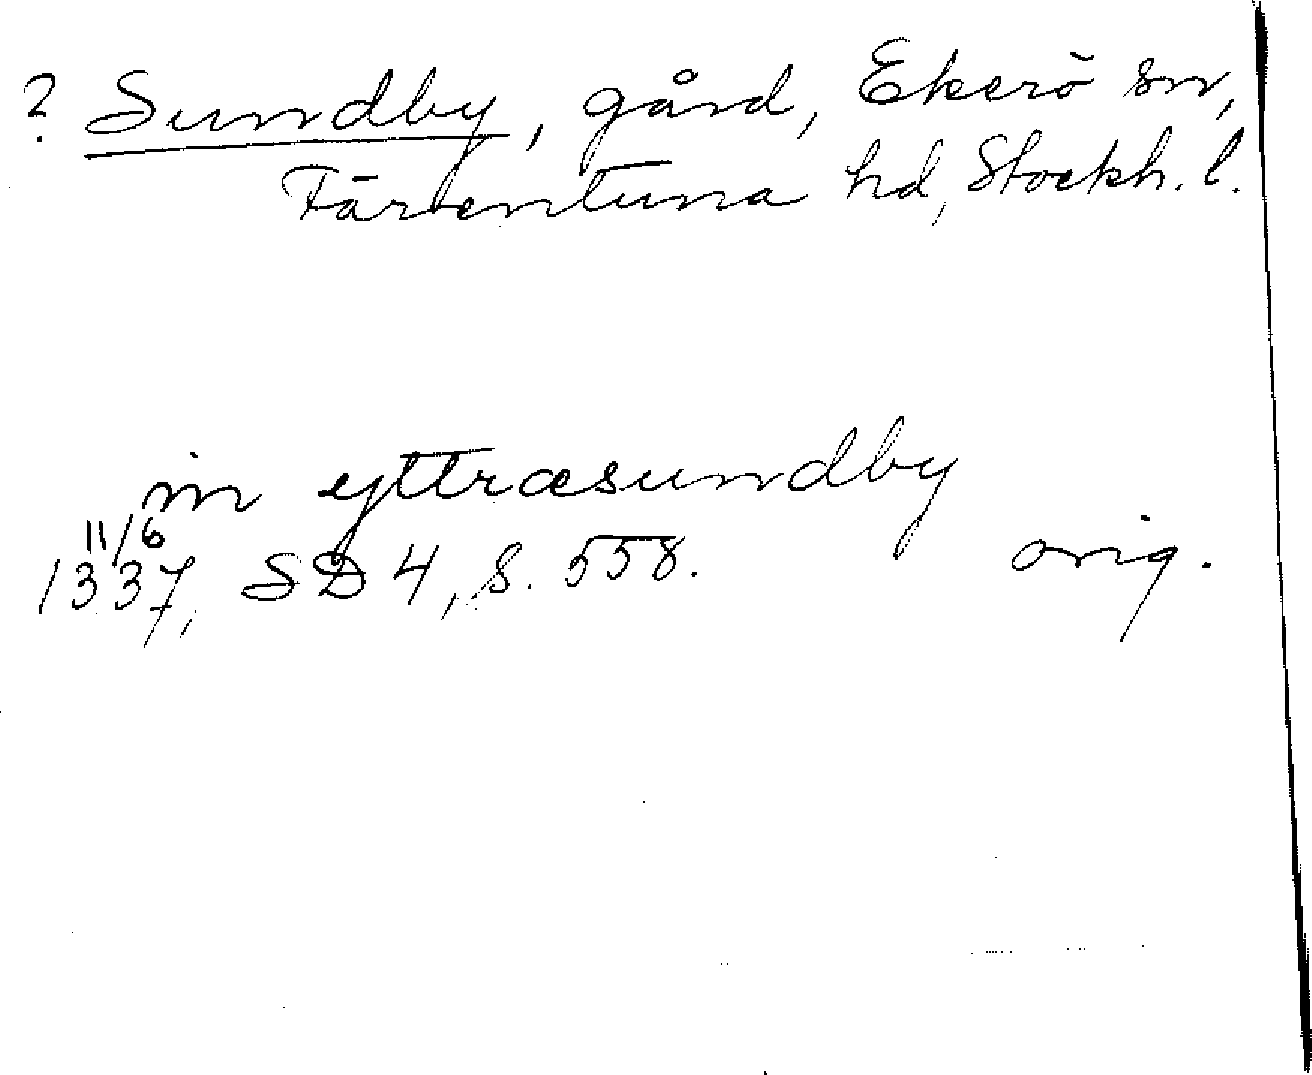 ? Sundby, gård, Ekerö sn,
Färentuna hd, Stockh. l.
in yttræsundby
11/6
1337, SD 4, s. 558. orig.